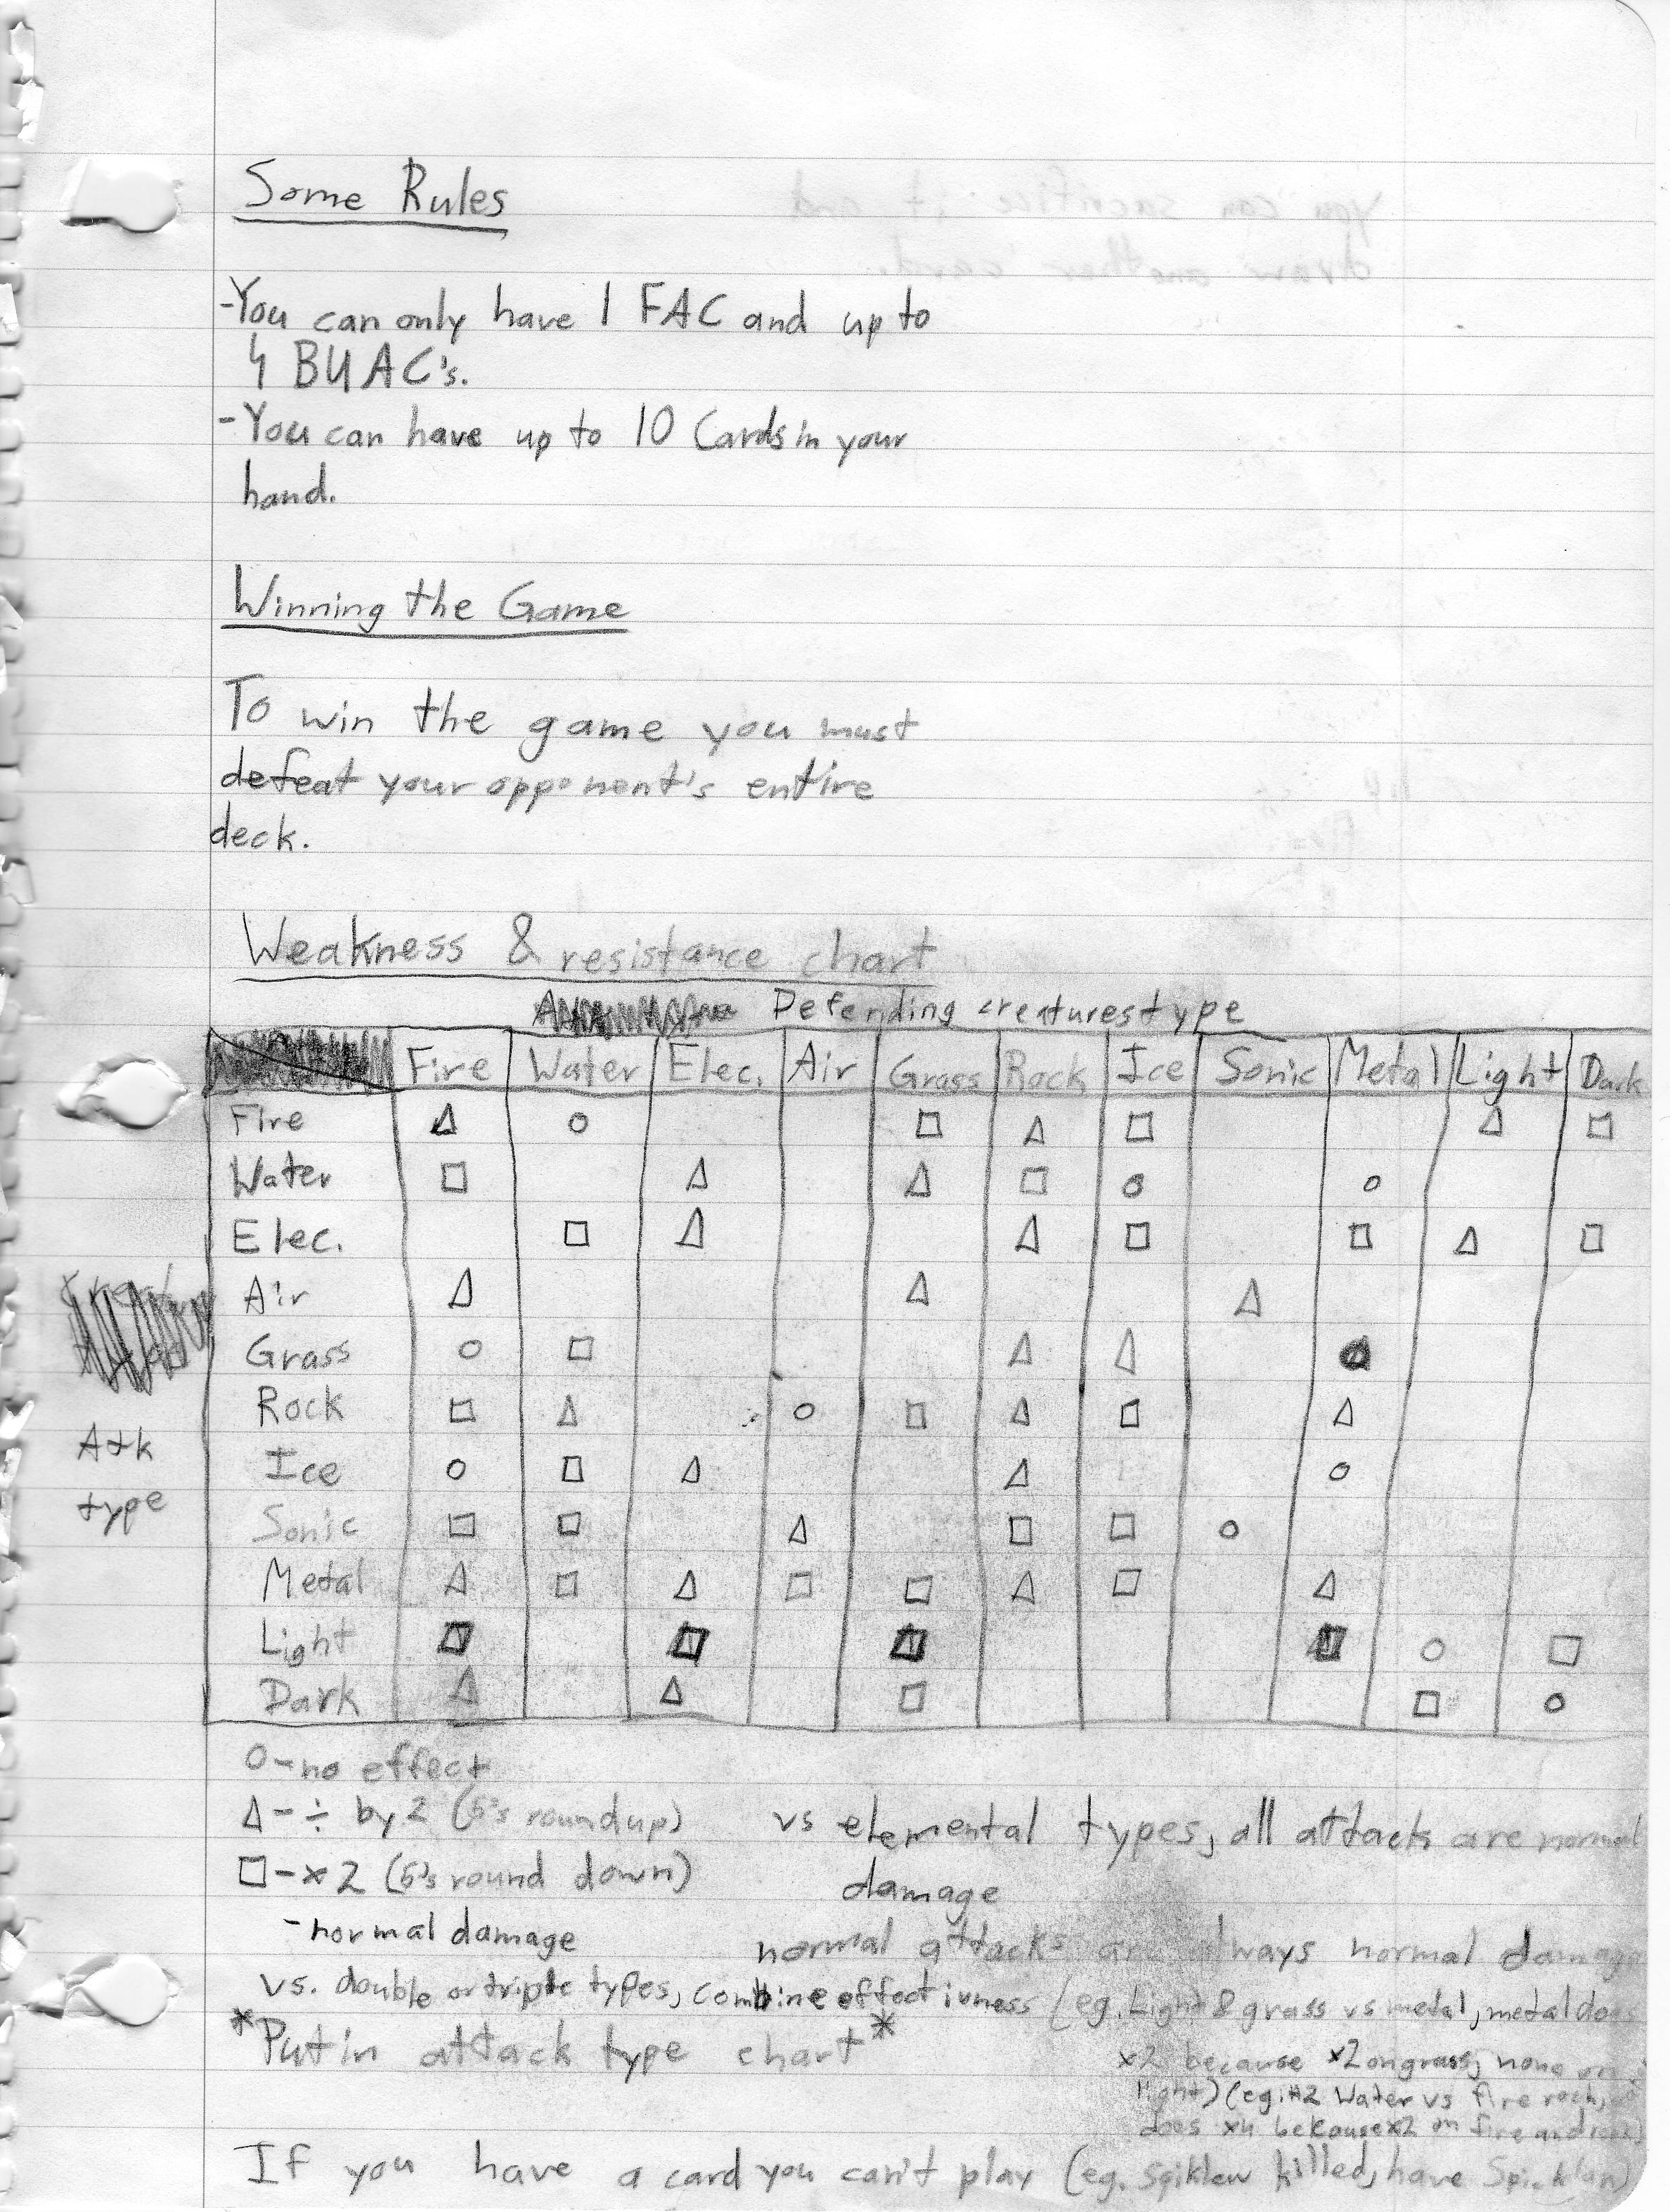 Some Rules
-You can only have 1 FAC and up to
4 BUAC's.
-You can have up to 10 Cards in your
hand.
Winning the Game
To win the game you must
defeat your opponent's entire
deck.
Weakness & resistance chart
Defending creatures type
Fire Water Elec. Air Grass Rock Ice Sonic Metal Light Dark
Fire △ ○ □ △ □ △ □
Water □ △ △ □ ○ ○
Elec. □ △ △ □ □ △ □
Air △ △ △
Grass ○ □ △ △
Rock □ △ ○ □ △ □ △
Ice ○ □ △ △ ○
Sonic □ □ △ □ □ ○
Metal △ □ △ □ □ △ □ △
Light □ □ □ □ ○ □
Dark △ △ □ □ ○
Atk
type
O-no effect
△-÷ by 2 (5's round up)
□-x2 (5's round down)
-normal damage
vs elemental types, all attacks are normal
damage
normal attacks are always normal damage
vs. double or triple types, combine effectivness (eg. Light & grass vs metal, metal does
x2 because x2 on grass, none on
light) (eg. #2 Water vs fire rock,
does x4 bekause x2 on fire and rock)
*Put in attack type chart*
If you have a card you can't play (eg. Spiklew killed, have
you can sacrifice it and
draw another card.